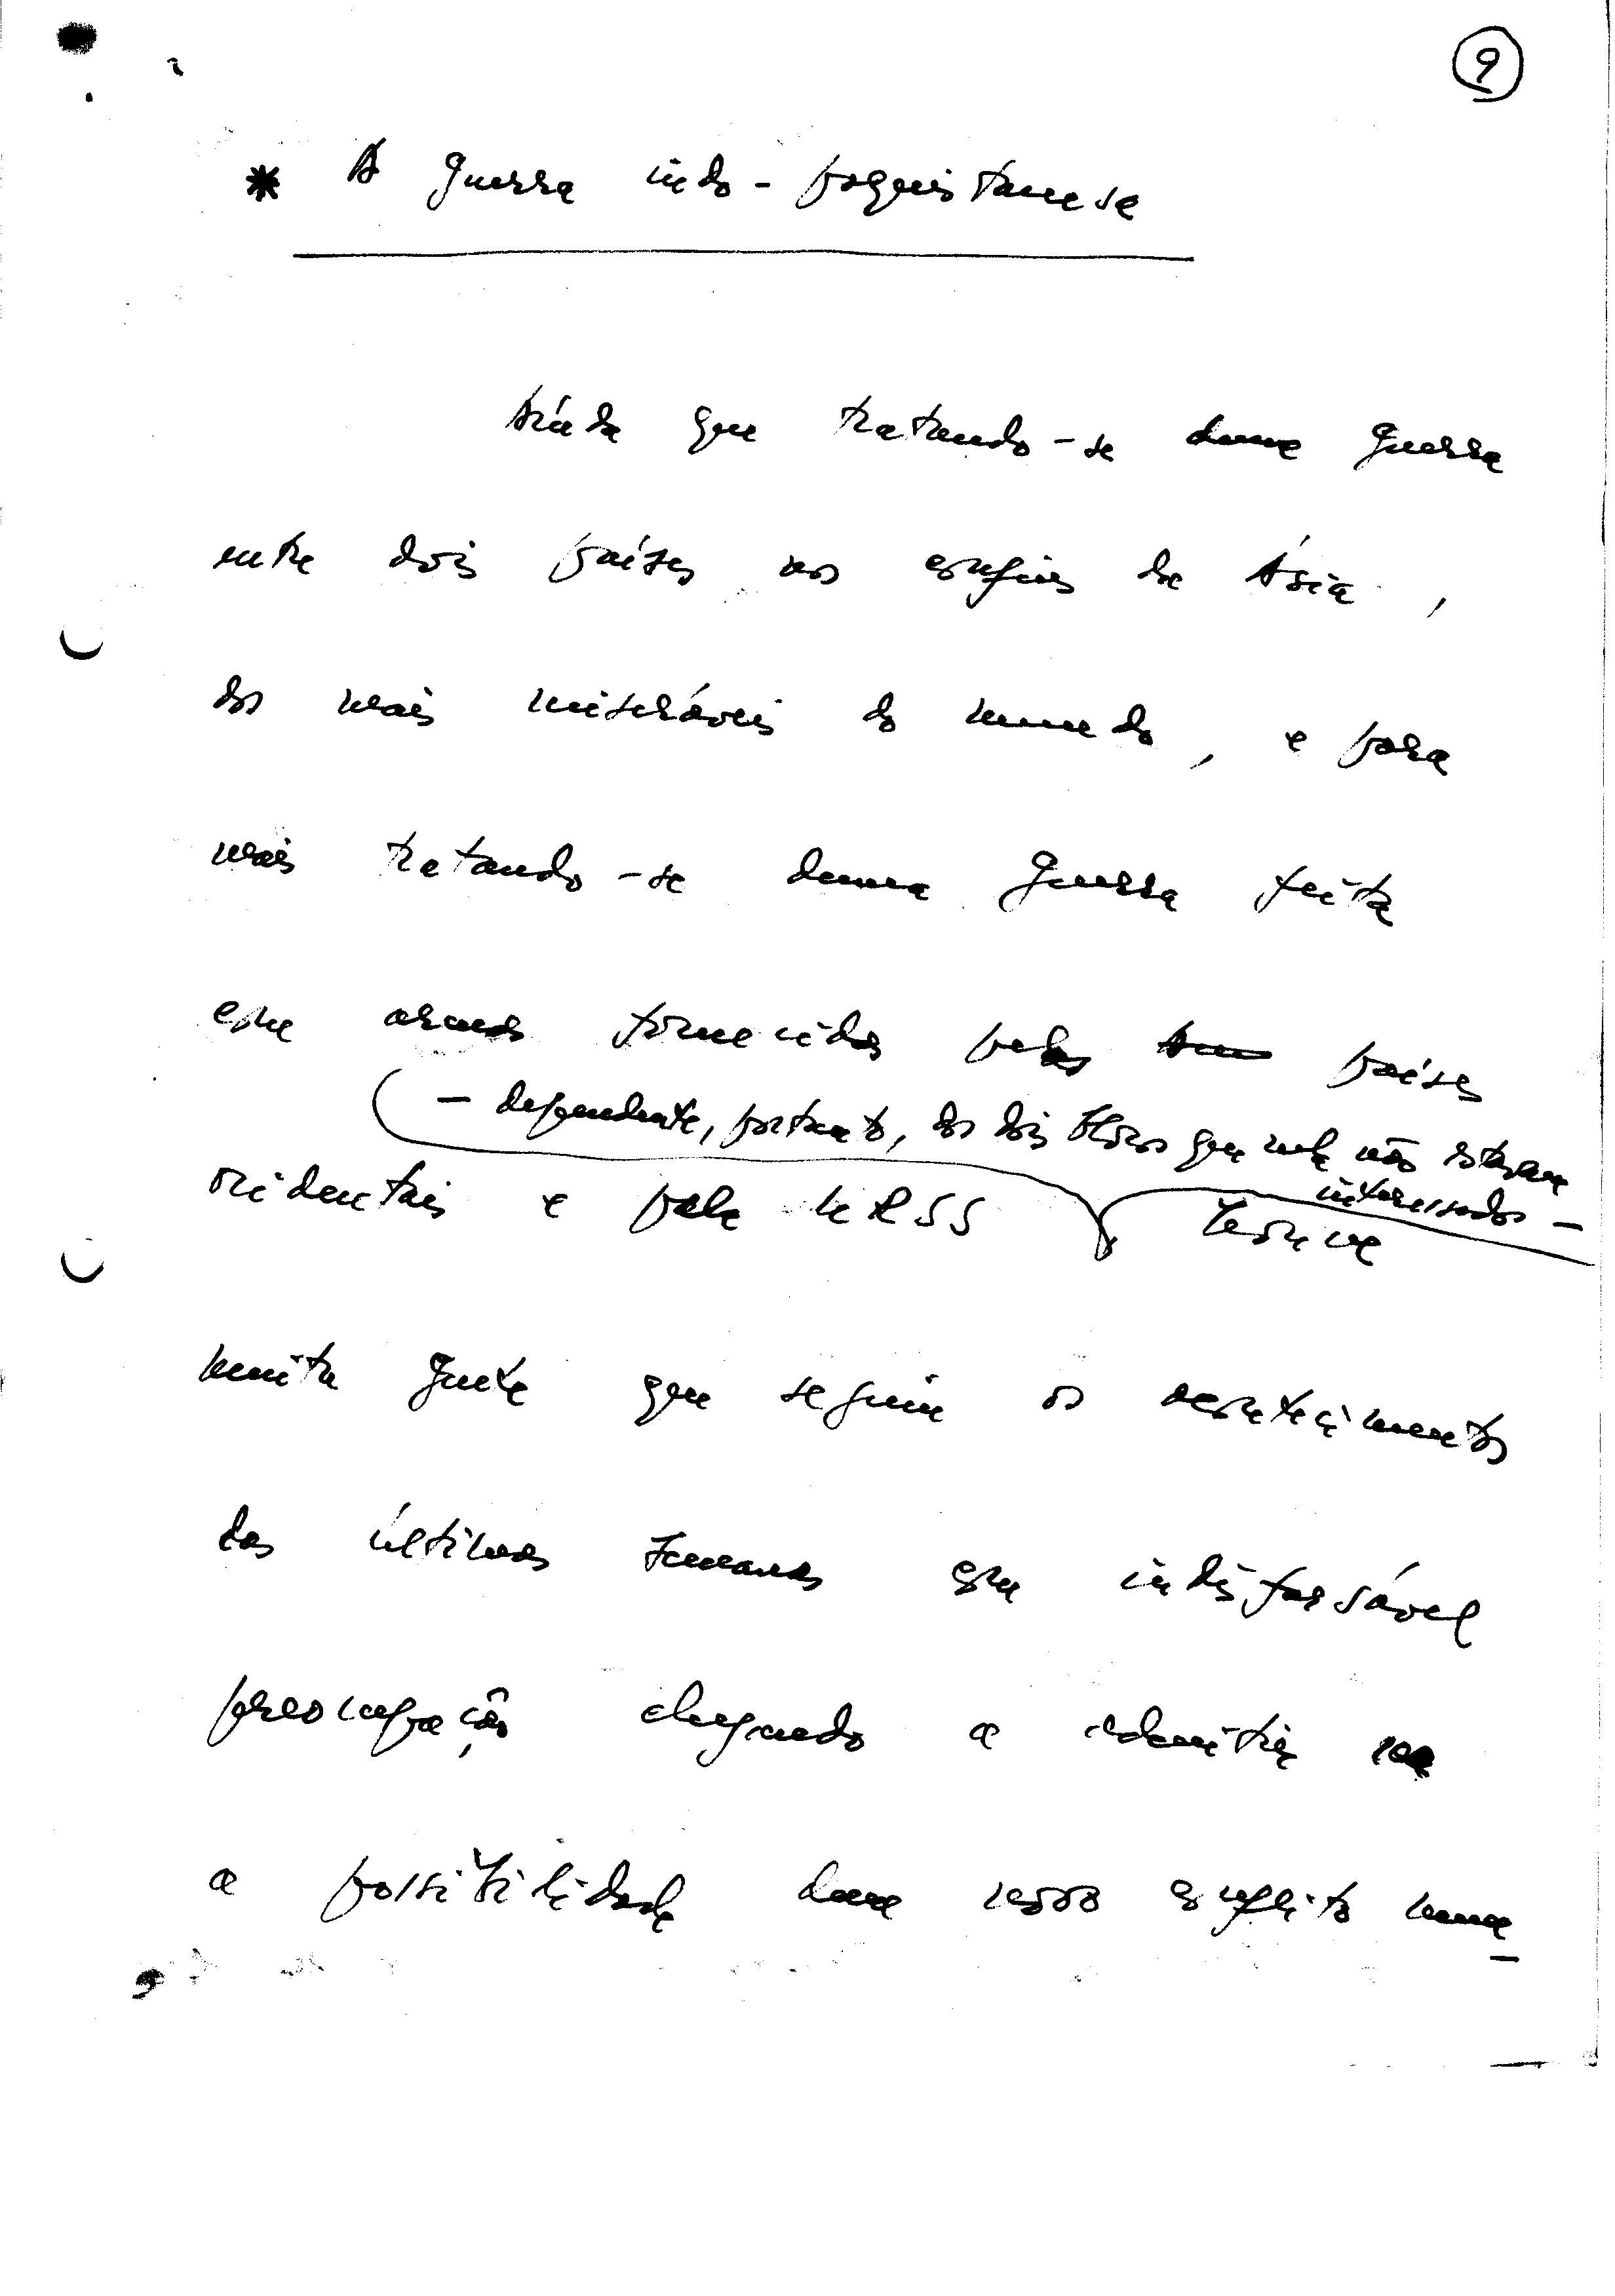 9
* A guerra indo-paquistanesa
Ainda que tratando-se duma guerra
entre dois países nos confins da Ásia,
dos mais miseráveis do mundo, e para
mais tratando-se duma guerra feita
com armas fornecidas pelos países
— dependente, portanto, dos dois blocos que nela não estavam
interessados —
ocidentais e pela URSS houve
muita gente que seguiu os acontecimentos
das últimas semanas com indisfarsável
preocupação chegando a admitir
a possibilidade duma novo conflito numa